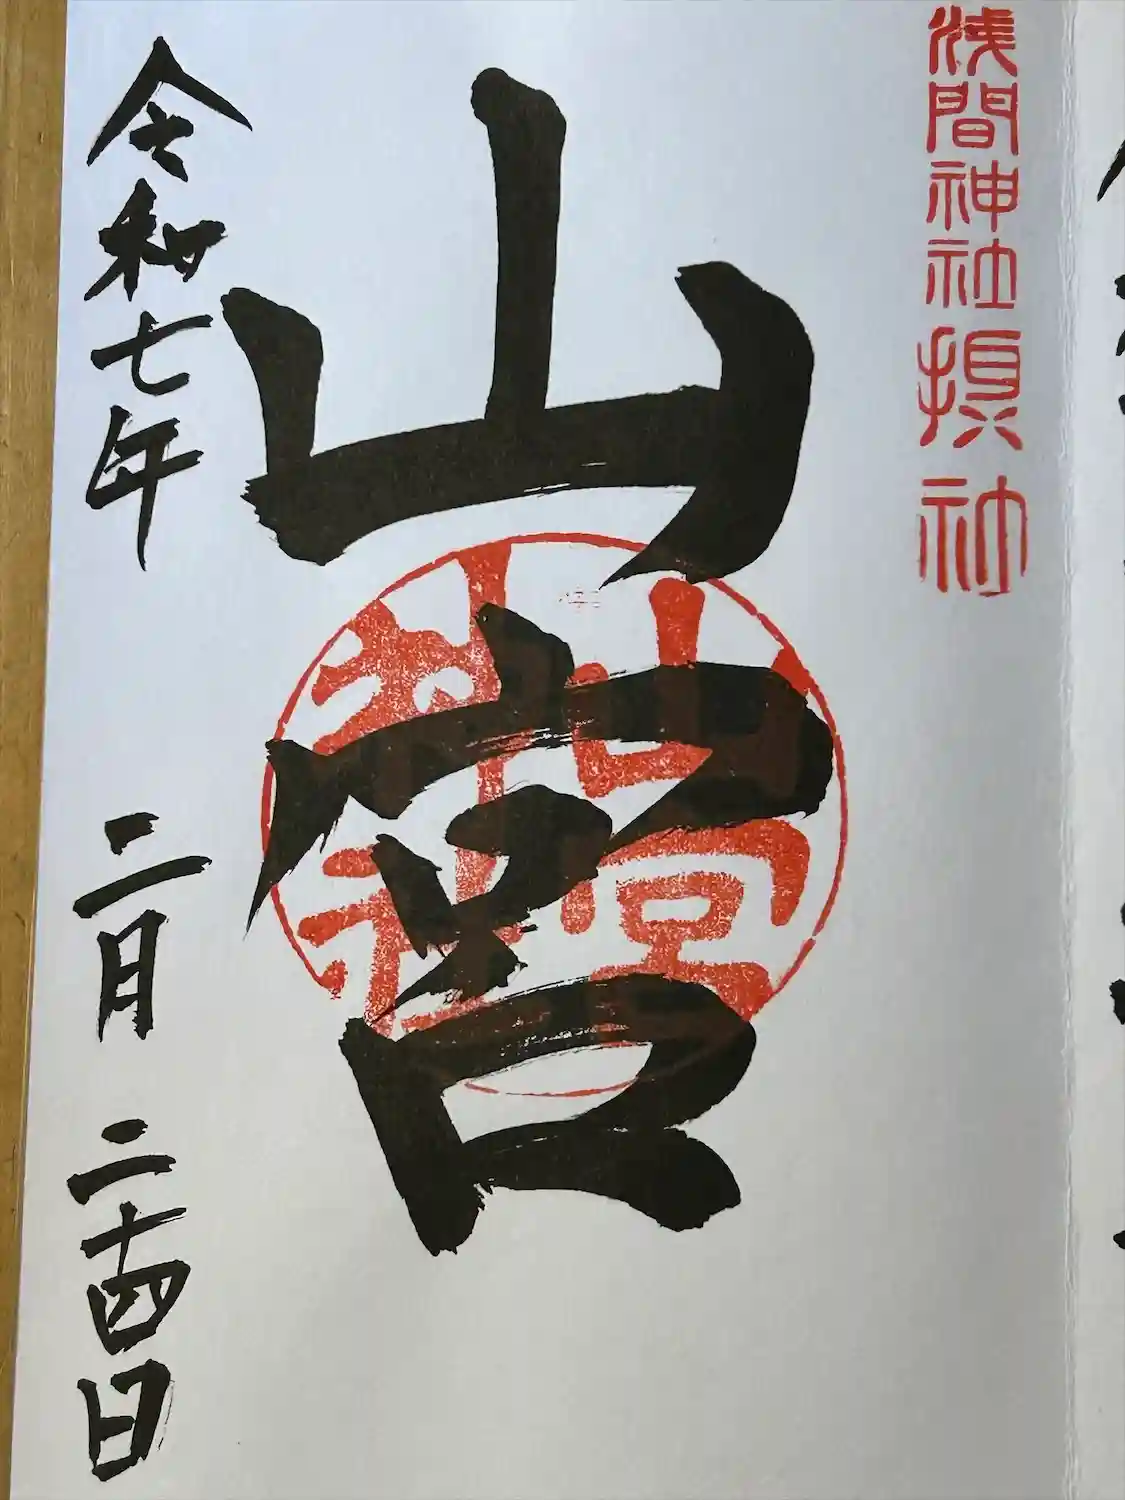 浅間神社摂社
山宮
山宮
神社
令和七年 二月 二十四日